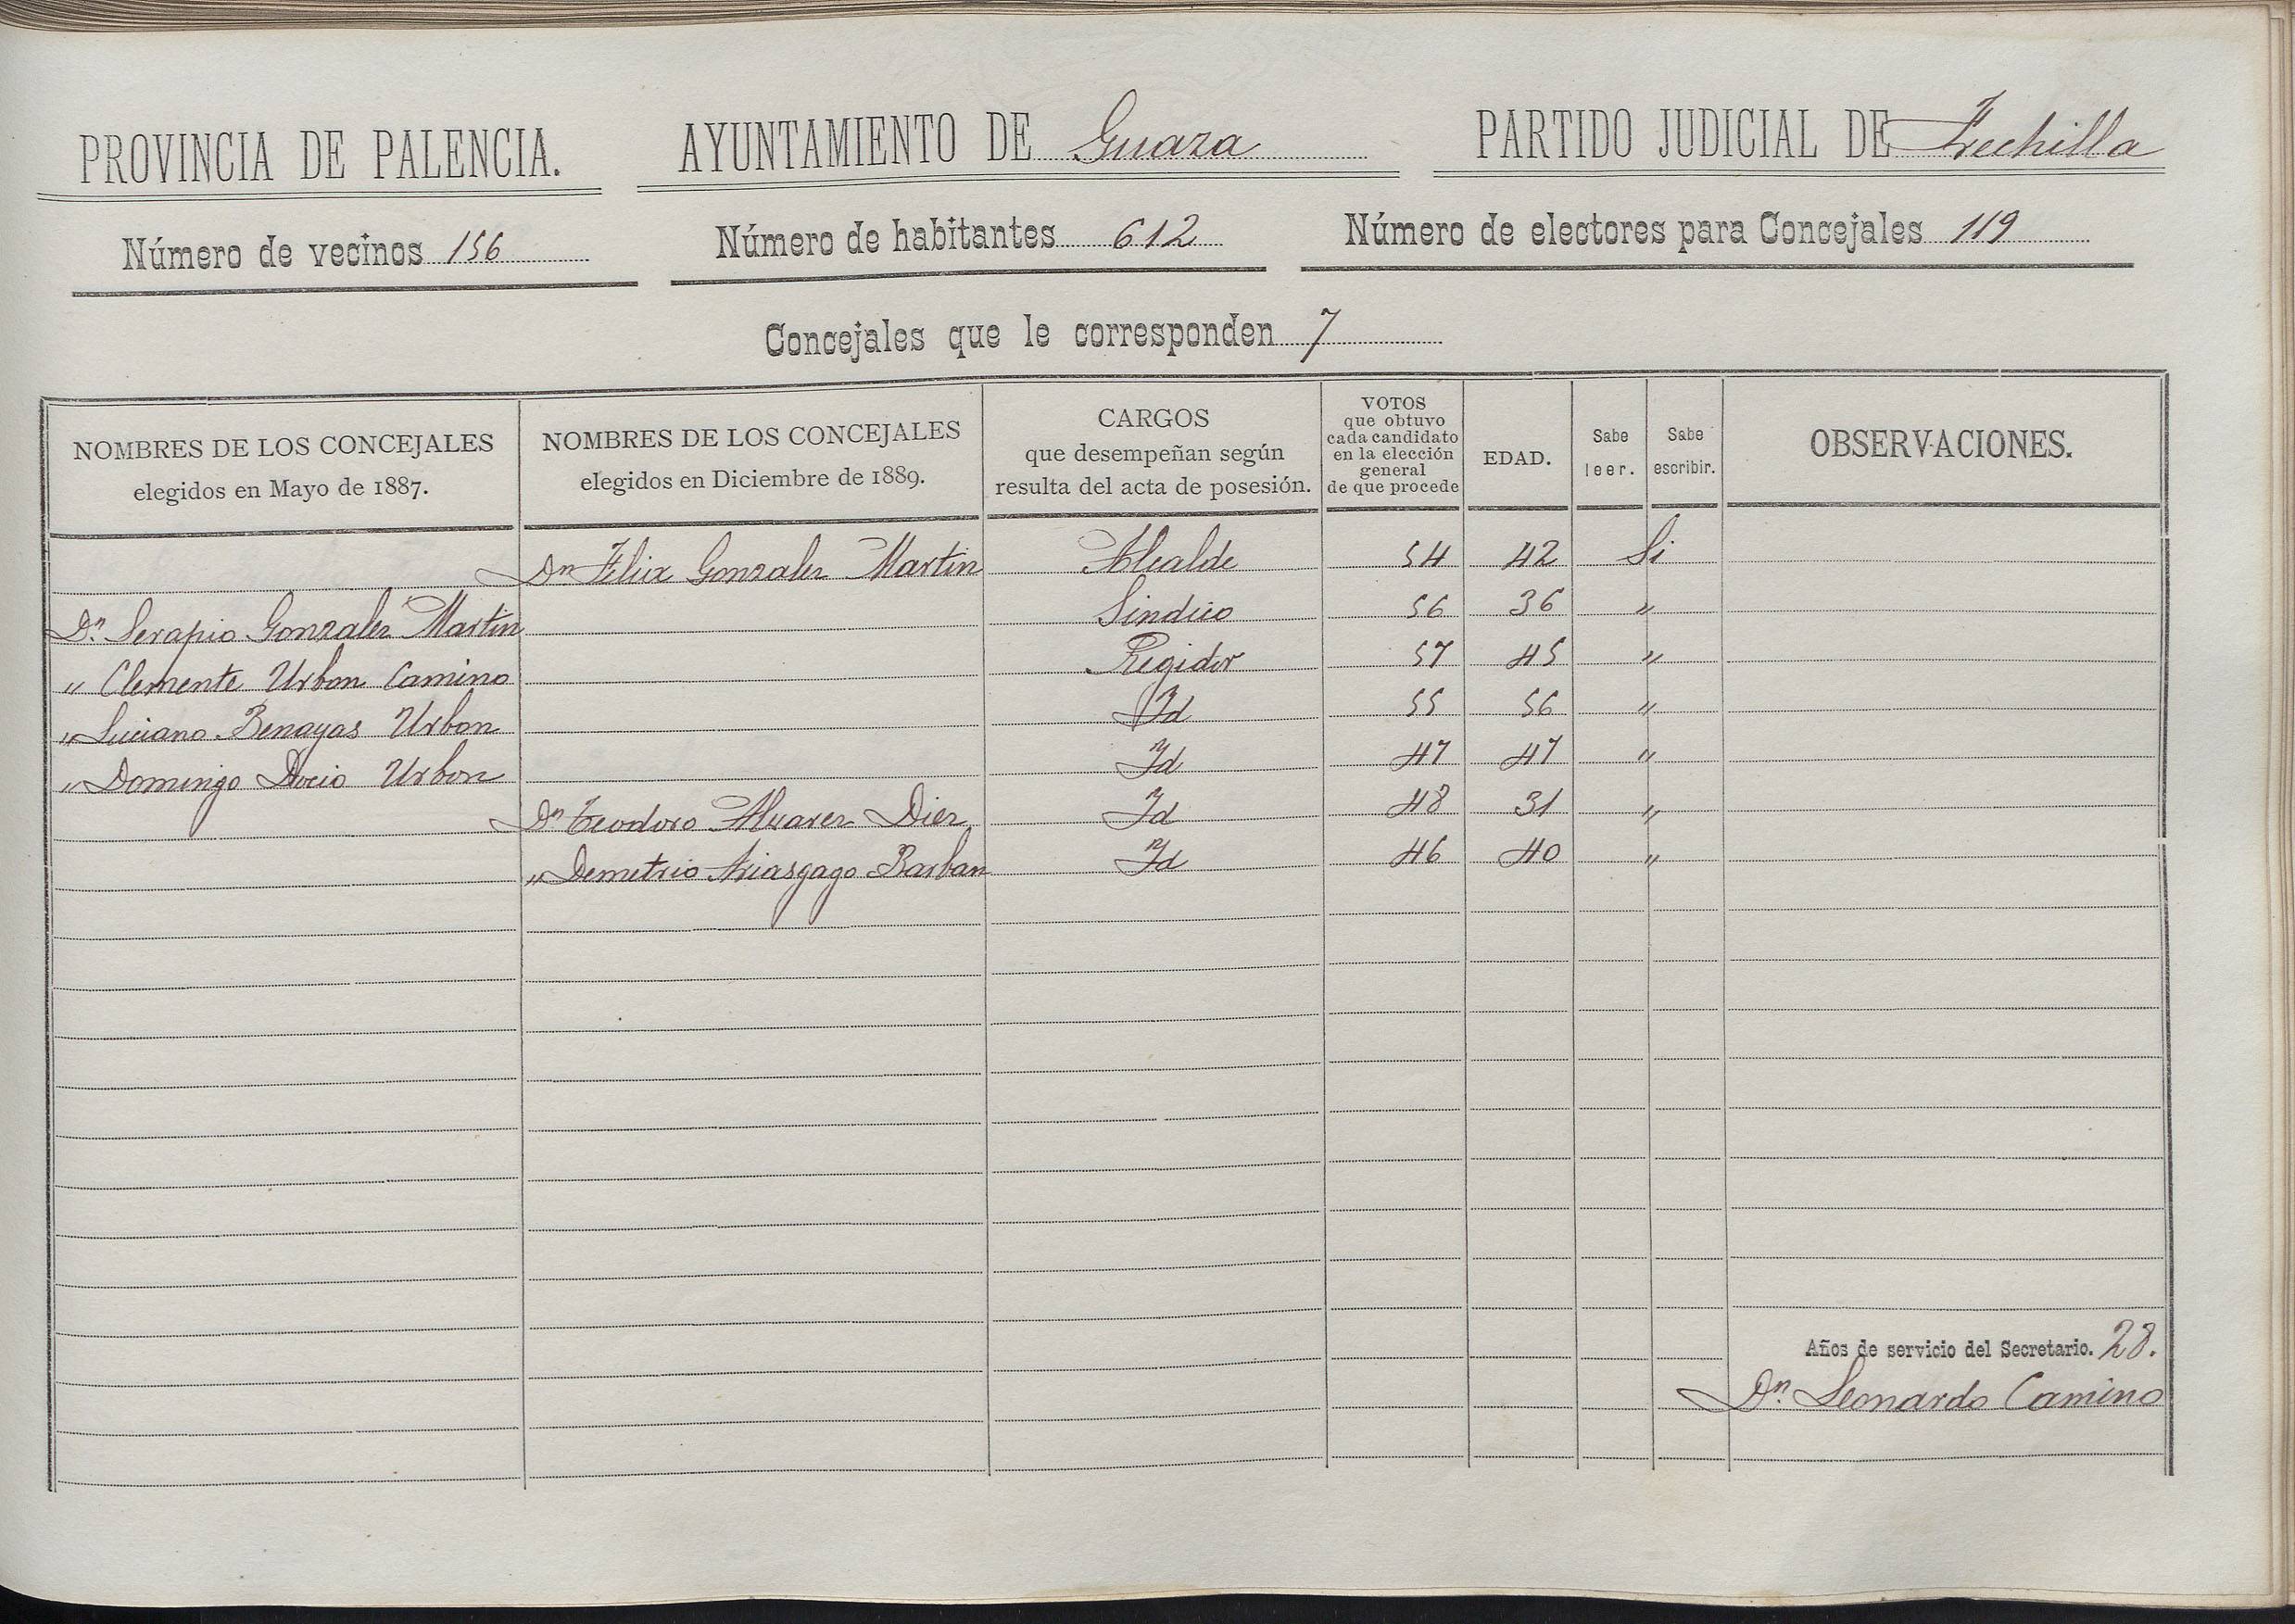 PROVINCIA DE PALENCIA. AYUNTAMIENTO DE Guaza PARTIDO JUDICIAL DE Frechilla
Número de vecinos 156 Número de habitantes 612 Número de electores para Concejales 119
Concejales que le corresponden 7
NOMBRES DE LOS CONCEJALES
elegidos en Mayo de 1887.
NOMBRES DE LOS CONCEJALES
elegidos en Diciembre de 1889.
CARGOS
que desempeñan según
resulta del acta de posesión.
VOTOS
que obtuvo
cada candidato
en la elección
general
de que procede
EDAD.
Sabe
leer.
Sabe
escribir.
OBSERVACIONES.
Dn Felix Gonzalez Martin Alcalde 54 42 Si
Dn. Serapio Gonzalez Martin Sindico 56 36 "
" Clemente Urbon Camino Regidor 57 45 "
" Luciano Benayas Urbon Id 55 56 "
" Domingo Docio Urbon Id 47 47 "
Dn Teodoro Alvarez Diez Id 48 31 "
" Demetrio Ariasgago Barban Id 46 40 "
Años de servicio del Secretario. 28.
Dn. Leonardo Camino